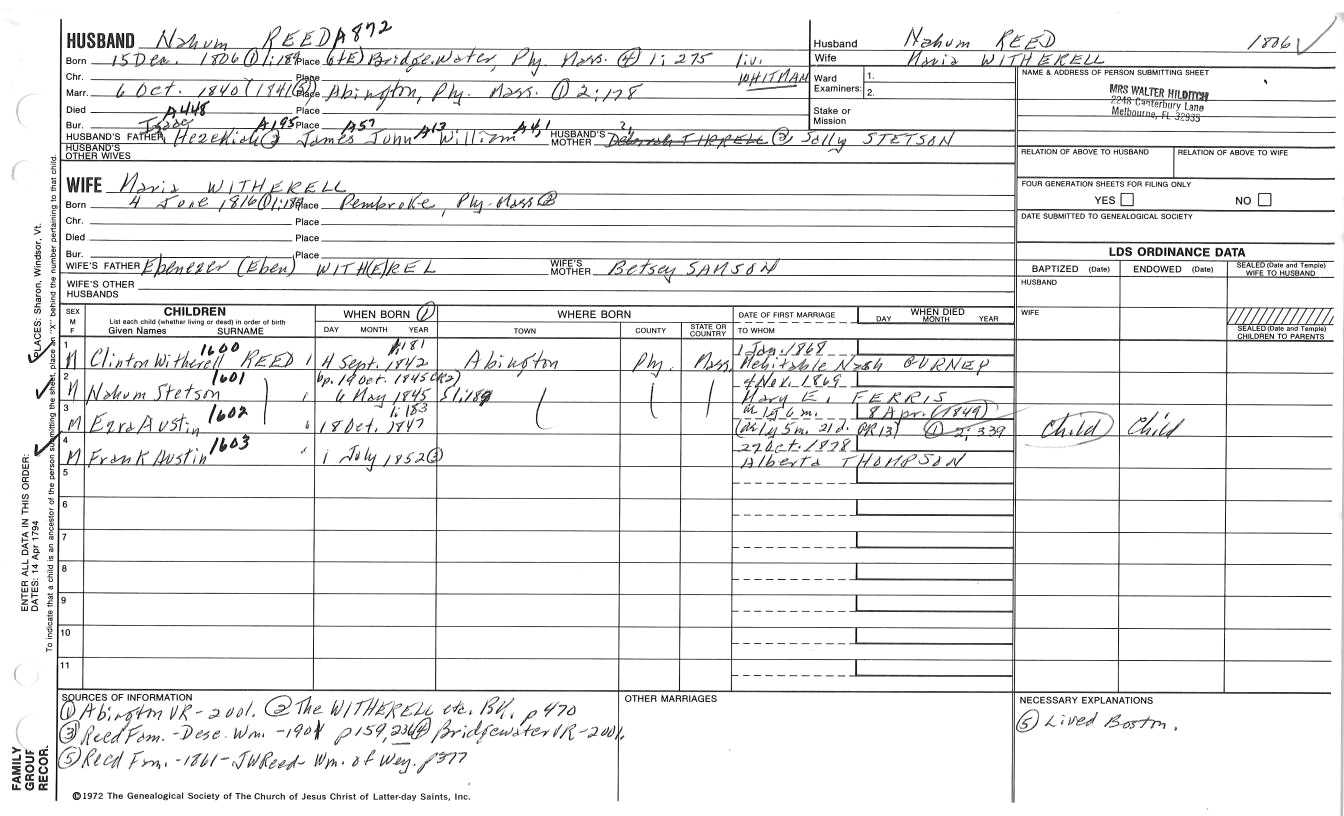 HUSBAND Nahum REED A872
Born 15 Dec. 1806 ① 1:189 Place (&E) Bridgewater, Ply. Mass. ④ 1:275 liv. WHITMAN
Chr. Place
Marr. 6 Oct. 1840 (1841③) Place Abington, Ply. Mass. ① 2:178
Died A448
Bur. Isaac A195 Place A57 A13 A4,1
HUSBAND'S FATHER Hezekiah③ James John William HUSBAND'S MOTHER 2, Deborah THERELL ③, Sally STETSON
HUSBAND'S OTHER WIVES
WIFE Maria WITHERELL
Born 4 June 1816 ① 1:189 Place Pembroke, Ply. Mass ②
Chr. Place
Died Place
Bur. Place
WIFE'S FATHER Ebenezer (Eben) WITH(E)REL WIFE'S MOTHER Betsey SAMSON
WIFE'S OTHER HUSBANDS
Husband Nahum REED 1806 ✓
Wife Maria WITHERELL
Ward Examiners: 1.
2.
Stake or Mission
NAME & ADDRESS OF PERSON SUBMITTING SHEET
MRS WALTER HILDITCH
2248 Canterbury Lane
Melbourne, FL 32935
RELATION OF ABOVE TO HUSBAND RELATION OF ABOVE TO WIFE
FOUR GENERATION SHEETS FOR FILING ONLY
YES NO
DATE SUBMITTED TO GENEALOGICAL SOCIETY
LDS ORDINANCE DATA
BAPTIZED (Date) ENDOWED (Date) SEALED (Date and Temple) WIFE TO HUSBAND
HUSBAND
WIFE
SEALED (Date and Temple) CHILDREN TO PARENTS
SEX M F CHILDREN WHEN BORN ① WHERE BORN DATE OF FIRST MARRIAGE WHEN DIED
List each child (whether living or dead) in order of birth
Given Names SURNAME DAY MONTH YEAR TOWN COUNTY STATE OR COUNTRY TO WHOM DAY MONTH YEAR
1600 1:181 1 Jan. 1868
1 M Clinton Witherell REED 4 Sept. 1842 Abington Ply. Mass. Mehitable Nash GURNEY
1601 bp. 19 Oct. 1845 (CR2) 4 Nov. 1869
2 M Nahum Stetson 6 May 1845 1:189 Mary E. FERRIS
1602 1:183 a. 1y 6 m. 8 Apr. (1849)
3 M Ezra Austin 18 Oct. 1847 (a. 1y 5m. 21d. GR13) ① 2:339 Child Child
1603 27 Oct. 1878
4 M Frank Austin 1 July 1852③ Alberta THOMPSON
5
6
7
8
9
10
11
SOURCES OF INFORMATION
① Abington VR-2001. ② The WITHERELL etc. BK. p 470
③ Reed Fam. - Desc. Wm. - 1901 p159, 236 ④ Bridgewater VR-2001.
⑤ Reed Fm. - 1861 - JWReed - Wm. of Wey. p377
OTHER MARRIAGES
NECESSARY EXPLANATIONS
⑤ Lived Boston.
©1972 The Genealogical Society of The Church of Jesus Christ of Latter-day Saints, Inc.
ENTER ALL DATA IN THIS ORDER:
DATES: 14 Apr 1794
PLACES: Sharon, Windsor, Vt.
To indicate that a child is an ancestor of the person submitting the sheet, place an "X" behind the number pertaining to that child.
FAMILY
GROUP
RECOR.